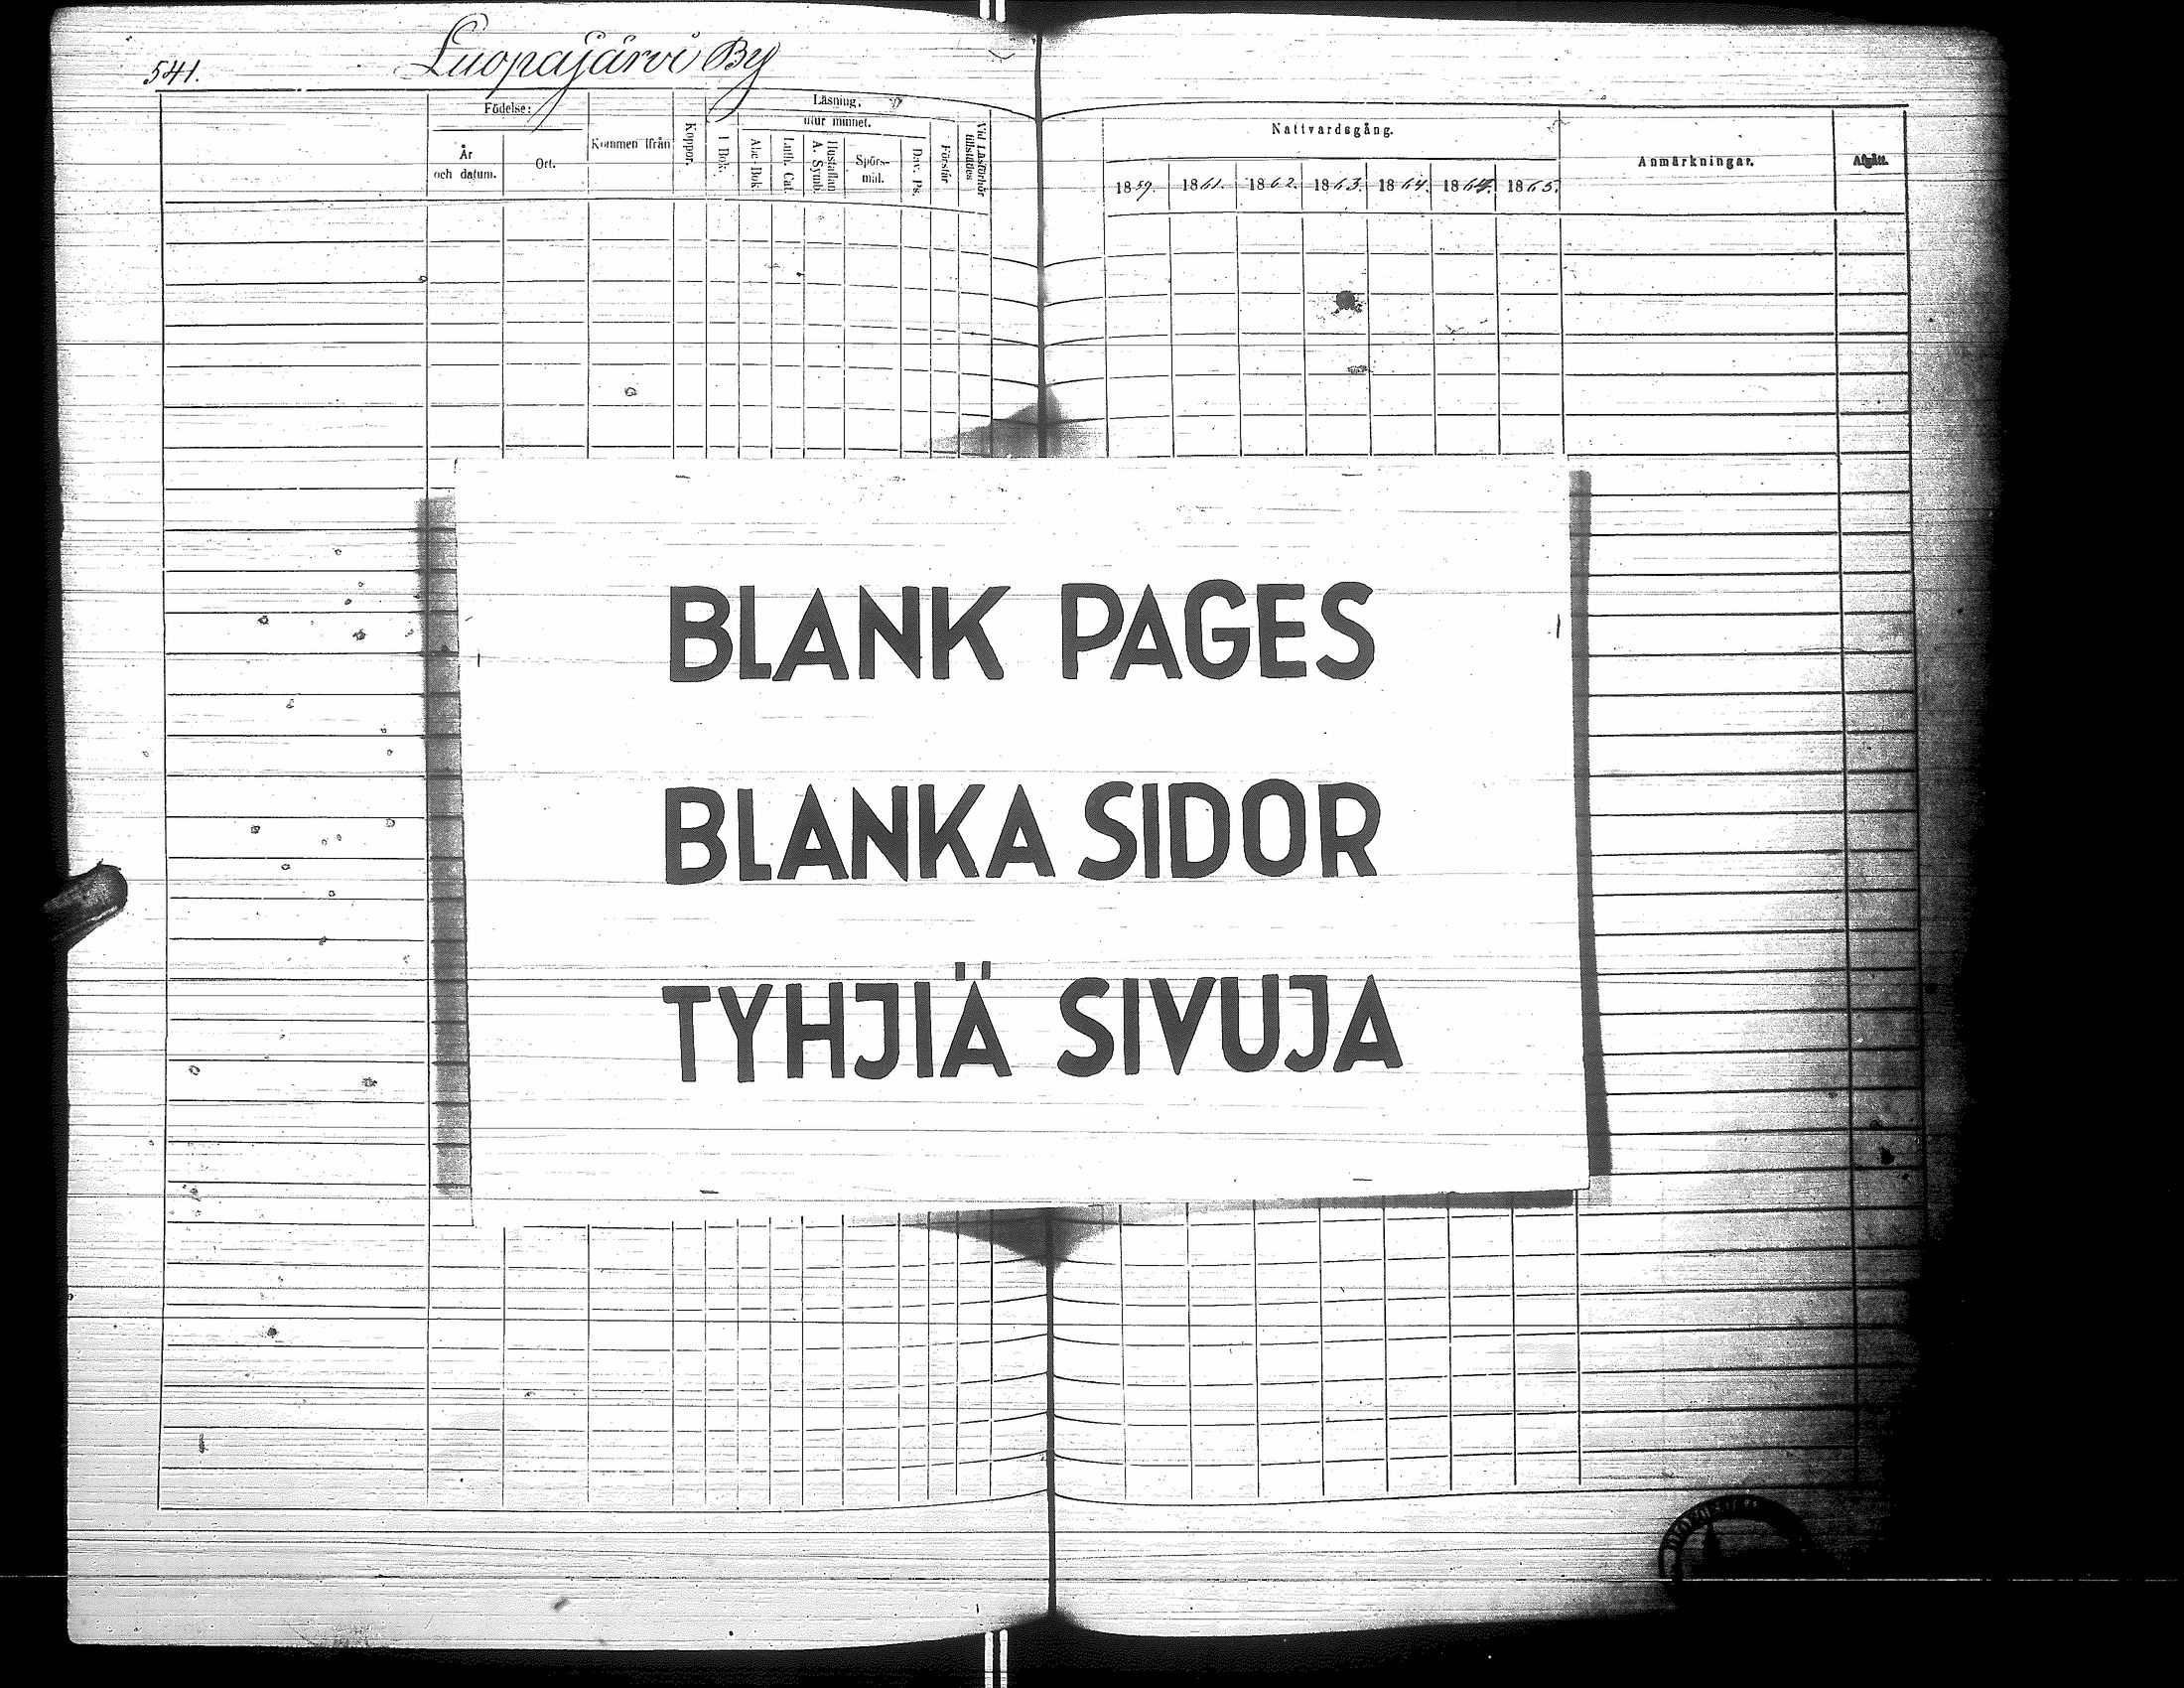 541.
Luopajärvi By
Födelse:
År
och datum.
Ort.
Kommen ifrån
Koppor.
Läsning,
utur minnet.
I Bok.
Abc-Bok
Luth. Cat.
Hustaflan
A. Symb.
Spörs-
mål.
Dav. Ps.
Förstår
Vid Läsförhör
tillstädes
Nattvardsgång.
1859.
1861.
1862.
1863.
1864.
1864.
1865.
Anmärkningar.
Afgått.
BLANK PAGES
BLANKA SIDOR
TYHJIÄ SIVUJA